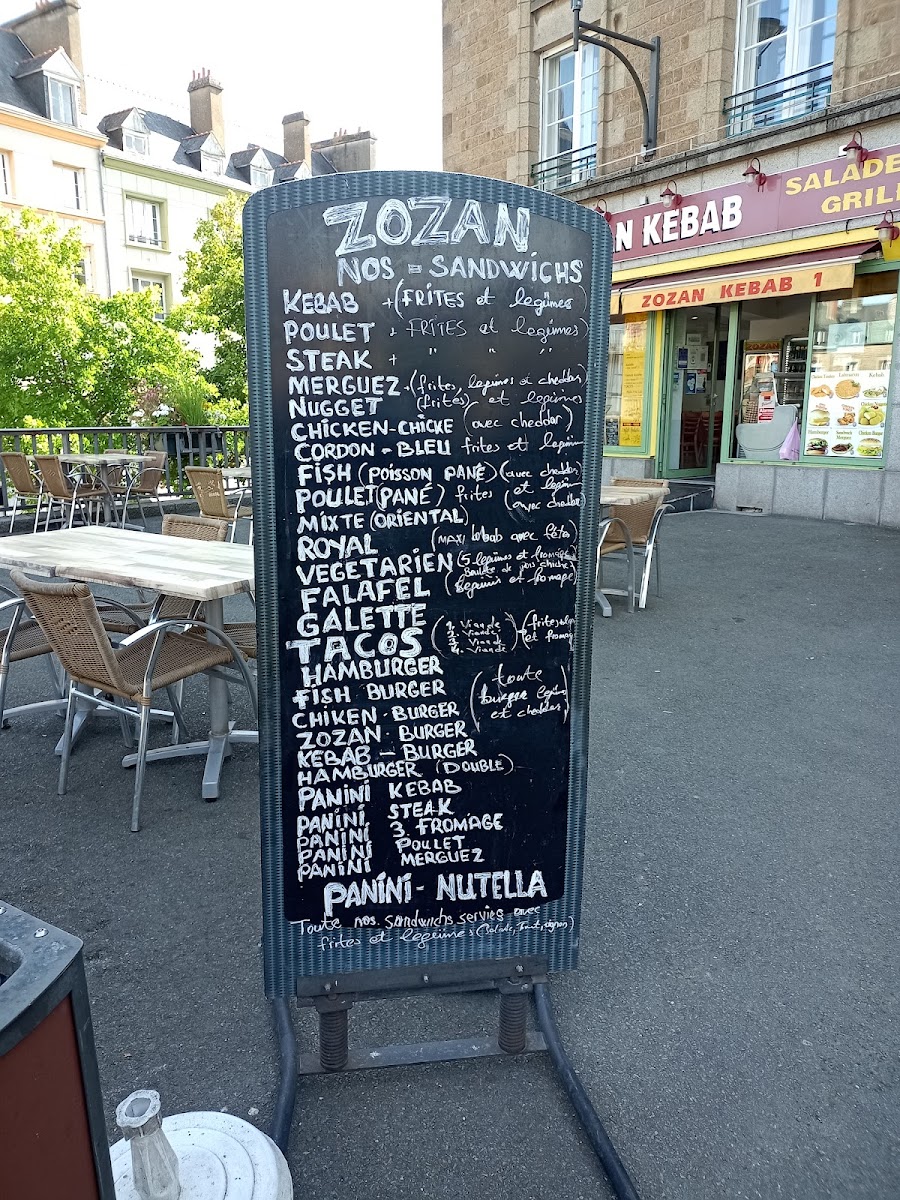 ZOZAN
NOS = SANDWICHS
KEBAB + (FRITES et legumes)
POULET + FRITES et legumes)
STEAK + " " "
MERGUEZ + (frites, legumes et cheddar)
NUGGET (frites) et legumes
CHICKEN-CHICKE (avec cheddar)
CORDON - BLEU frites et legum
FISH (POISSON PANÉ) (avec chedda
POULET (PANÉ) frites (et legum
(avec chedda
MIXTE (ORIENTAL)
ROYAL (MAXI kebab avec feta)
VEGETARIEN (5 legumes et fromage)
FALAFEL (Boulete de pois chiche
legumes et fromage)
GALETTE
TACOS (1. Viande
2. Viande
3. Viande
4. Viande) (frites
et fromag
HAMBURGER
FISH BURGER (toute
burger
et cheddar)
CHIKEN - BURGER
ZOZAN - BURGER
KEBAB - BURGER
HAMBURGER (DOUBLE)
PANINI KEBAB
PANINI STEAK
PANINI 3. FROMAGE
PANINI POULET
PANINI MERGUEZ
PANINI - NUTELLA
Toute nos sandwichs servies avec
frites et legumes (Salade, Tomat, oignon)
N KEBAB
SALADE
GRIL
ZOZAN KEBAB 1
ZOZAN